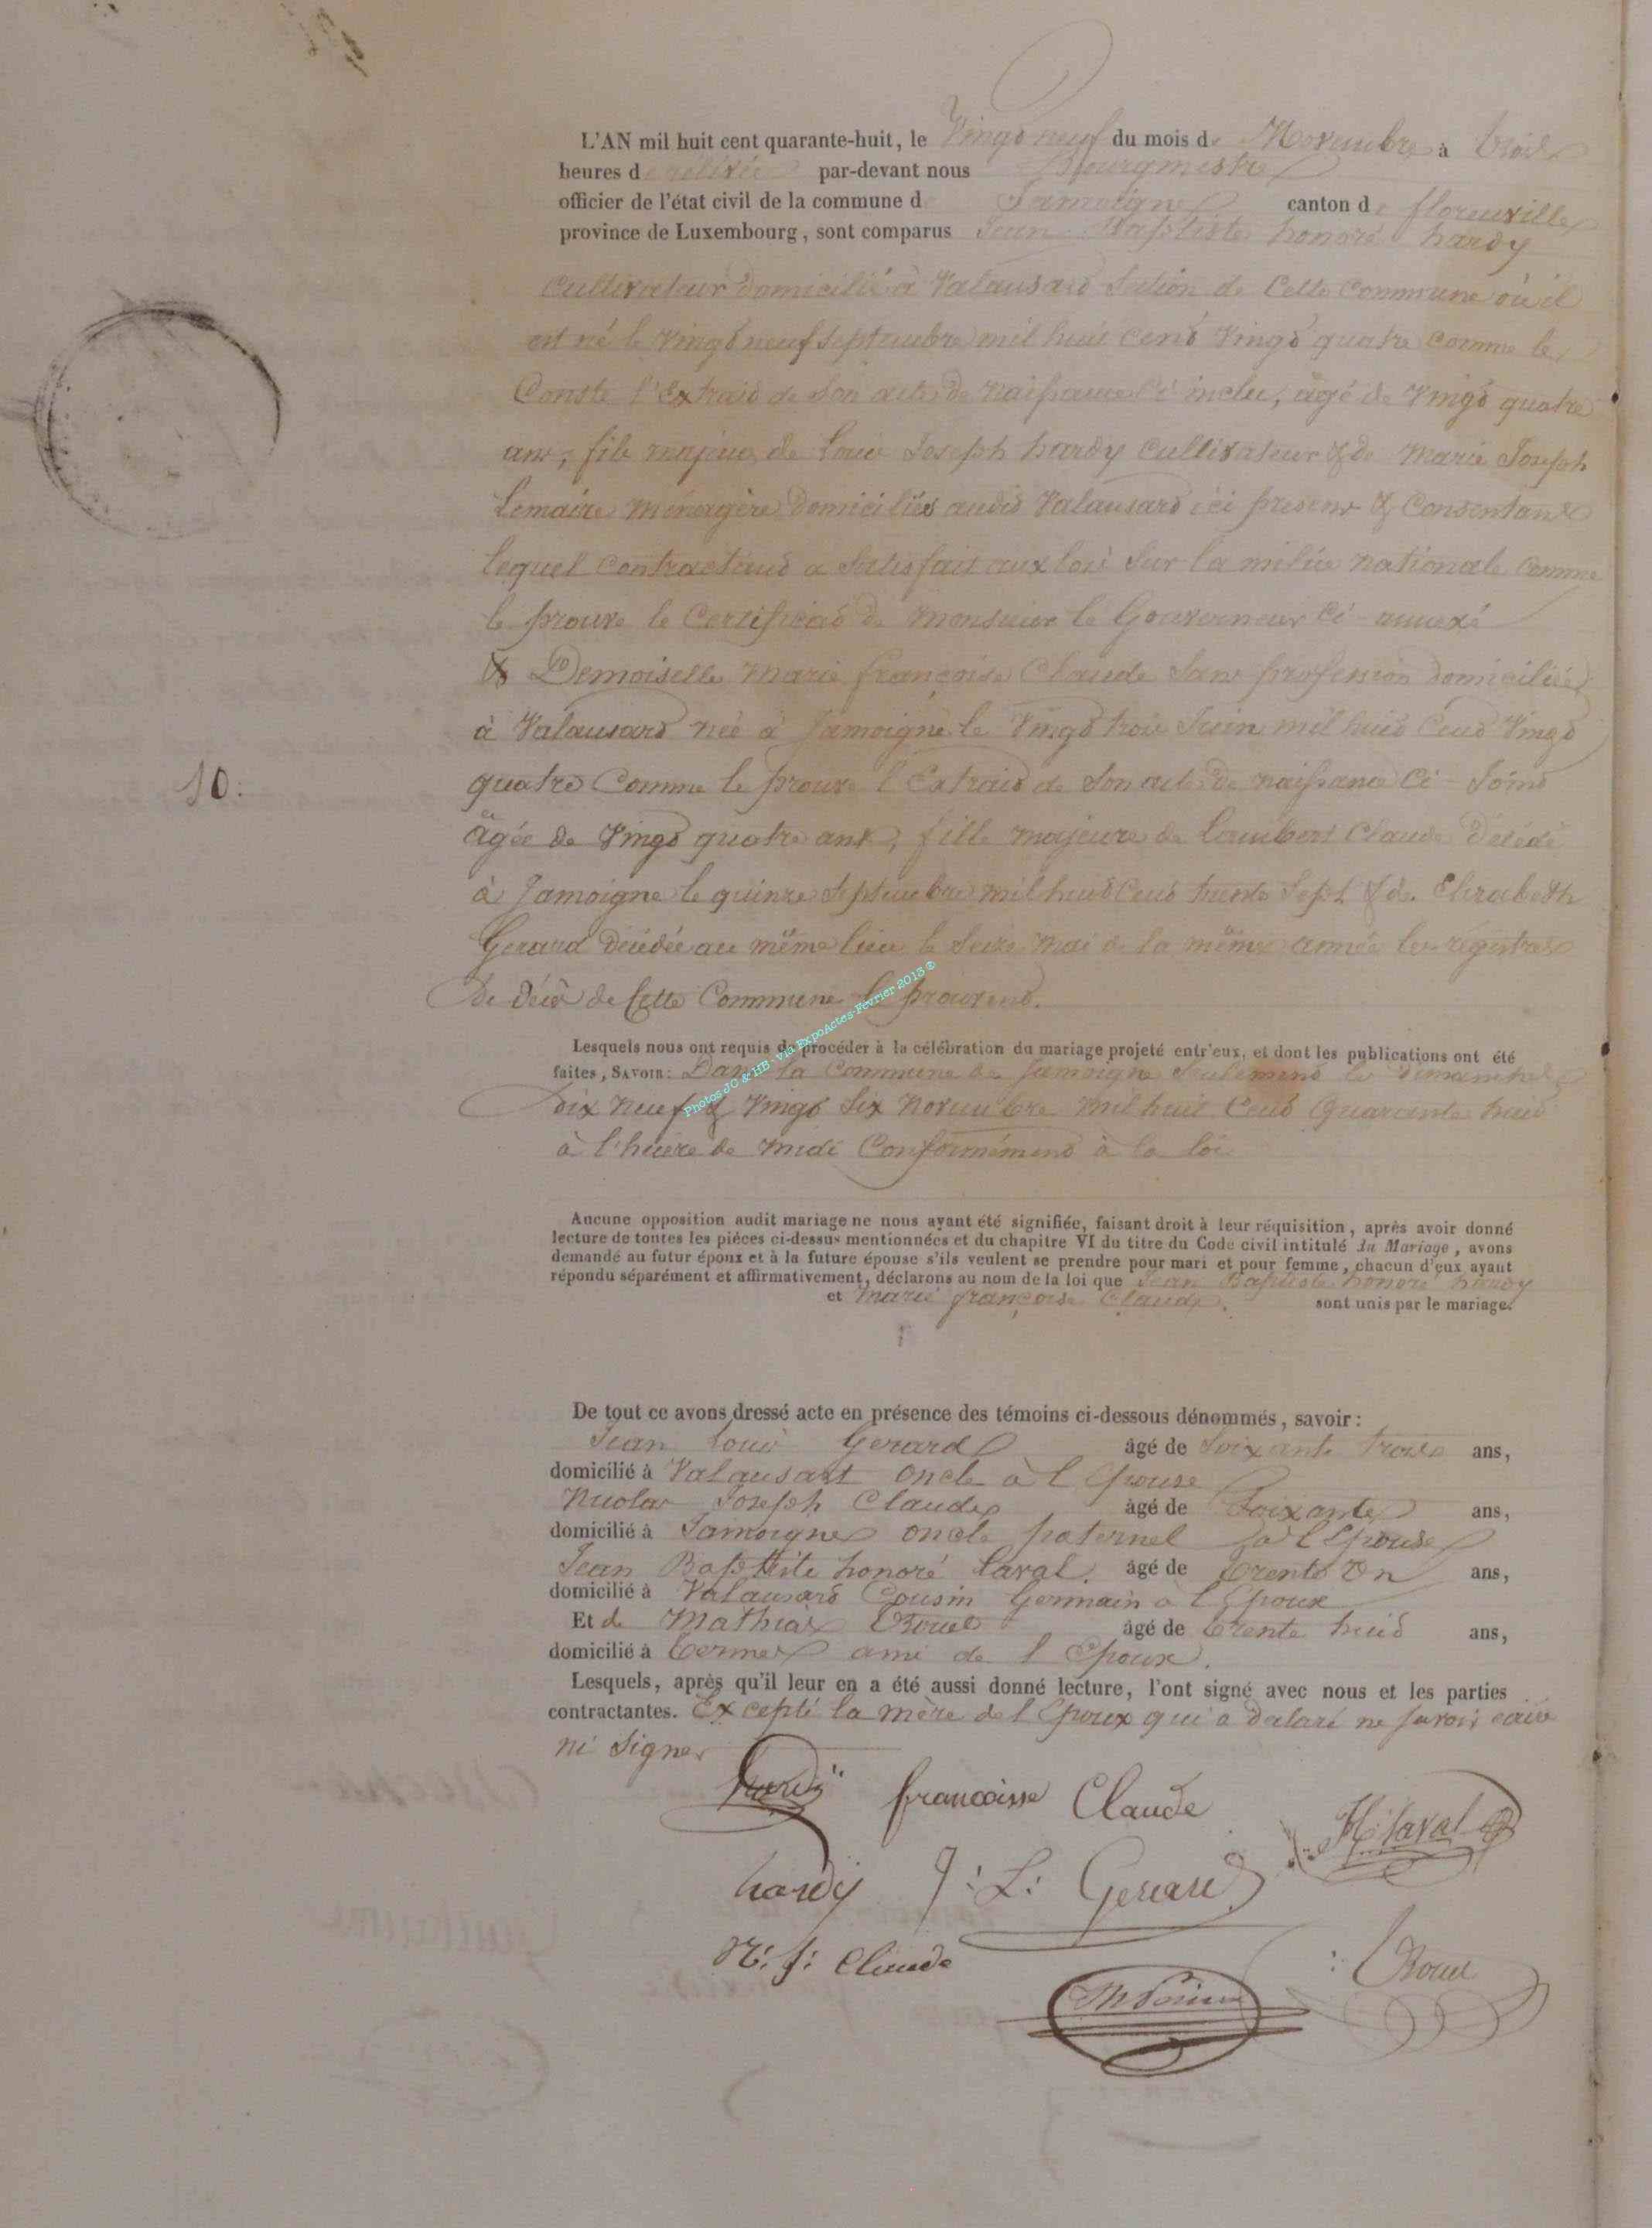 L'AN mil huit cent quarante-huit, le Vingt neuf du mois de Novembre à trois
heures de relevée par-devant nous Bourgmestre
officier de l'état civil de la commune de Jamoigne canton de florenville
province de Luxembourg, sont comparus Jean Baptiste honoré hardy
Cultivateur domicilié à Valansard Section de Cette Commune où il
est né le Vingt neuf Septembre mil huit Cent Vingt quatre comme le
Conste l'Extrait de Son acte de naissance Ci inclu, âgé de Vingt quatre
ans, fils majeur de Louis Joseph hardy Cultivateur & de Marie Joseph
Lemaire Ménagère Domiciliés audit Valansard ici présens & Consentans
lequel Contractant a Satisfait aux lois Sur la milice nationale Comme
le prouve le Certificat de Monsieur le Gouverneur Ci-annexé
& Demoiselle Marie françoise Claude Sans profession domiciliée
à Valansard née à Jamoigne le Vingt trois Juin mil huit Cent Vingt
quatre Comme le prouve l'Extrait de Son acte de naissance Ci-Joint
âgée de Vingt quatre ans, fille majeure de Lambert Claude Décédé
à Jamoigne le quinze Septembre mil huit Cent trente Sept & de Elisabeth
Gerard Décédée au même lieu le Seize Mai de la même année les régistres
de Décès de Cette Commune le prouvent.
10:
Lesquels nous ont requis de procéder à la célébration du mariage projeté entr'eux, et dont les publications ont été
faites, SAVOIR: Dans la Commune de Jamoigne Seulement les Dimanches
dix neuf & Vingt Six Novembre mil huit Cent Quarante huit
à l'heure de midi Conformément à la loi
Photos JC & HB - via ExpoActes-Février 2013 ©
Aucune opposition audit mariage ne nous ayant été signifiée, faisant droit à leur réquisition, après avoir donné
lecture de toutes les pièces ci-dessus mentionnées et du chapitre VI du titre du Code civil intitulé du Mariage, avons
demandé au futur époux et à la future épouse s'ils veulent se prendre pour mari et pour femme, chacun d'eux ayant
répondu séparément et affirmativement, déclarons au nom de la loi que Jean Baptiste honoré hardy
et Marie françoise Claude. sont unis par le mariage.
De tout ce avons dressé acte en présence des témoins ci-dessous dénommés, savoir:
Jean Louis Gerard âgé de Soixante trois ans,
domicilié à Valansart oncle à l'Epouse
Nicolas Joseph Claude âgé de Soixante ans,
domicilié à Jamoigne oncle paternel à l'Epouse
Jean Baptiste honoré Laval. âgé de trente Un ans,
domicilié à Valansard Cousin Germain à l'Epoux
Et de Mathias âgé de trente huit ans,
domicilié à Termes ami de l'Epoux.
Lesquels, après qu'il leur en a été aussi donné lecture, l'ont signé avec nous et les parties
contractantes. Excepté la mère de l'Epoux qui a déclaré ne Savoir écrire
ni Signer
hardÿ francoisse Claude H: Laval
hardy J: L: Gerard
N: J: Claude